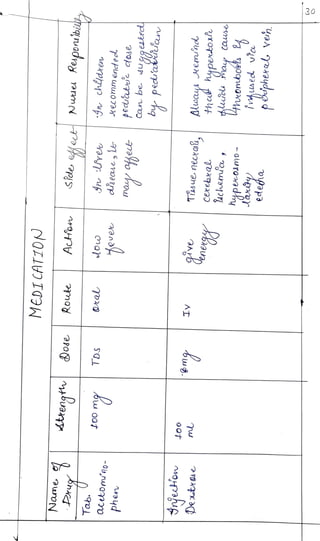 30
MEDICATION
Name of Drug
Strength
Dose
Route
Action
Side effect
Nurses Responsibility
Tab.
acetomino-
phen
100 mg
TDS
Oral
low
fever
In liver
disease, it
may affect
In children
recommended
pediatric dose
can be suggested
by pediatrician
Injection
Dextrose
100
ml
IV
give
energy
Tissue necrosis,
cerebral
ischemia,
hyperosmo-
larity
edema
Always remind
that hypertonic
fluids may cause
thrombosis if
infused via
peripheral vein